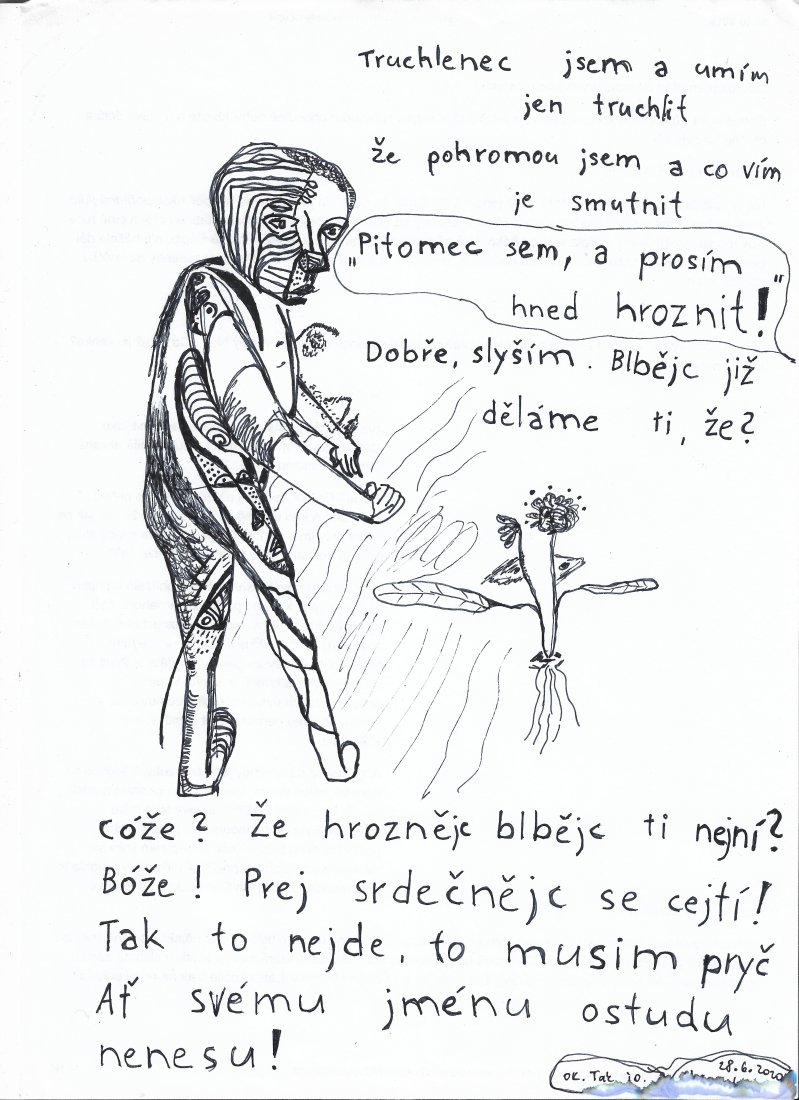 Truchlenec jsem a umím
jen truchlit
že pohromou jsem a co vím
je smutnit
"Pitomec sem, a prosím
hned hroznit!"
Dobře, slyším. Blbějc již
děláme ti, že?
cóže? Že hrozněje blbějc ti nejní?
Bóže! Prej srdečnějc se cejtí!
Tak to nejde, to musim pryč
Ať svému jménu ostudu
nenesu!
OK. Tak jo.
28.6.2020